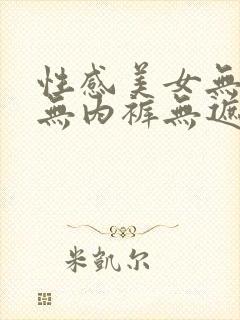 性感美女無
無內裤無遮
米凱尔